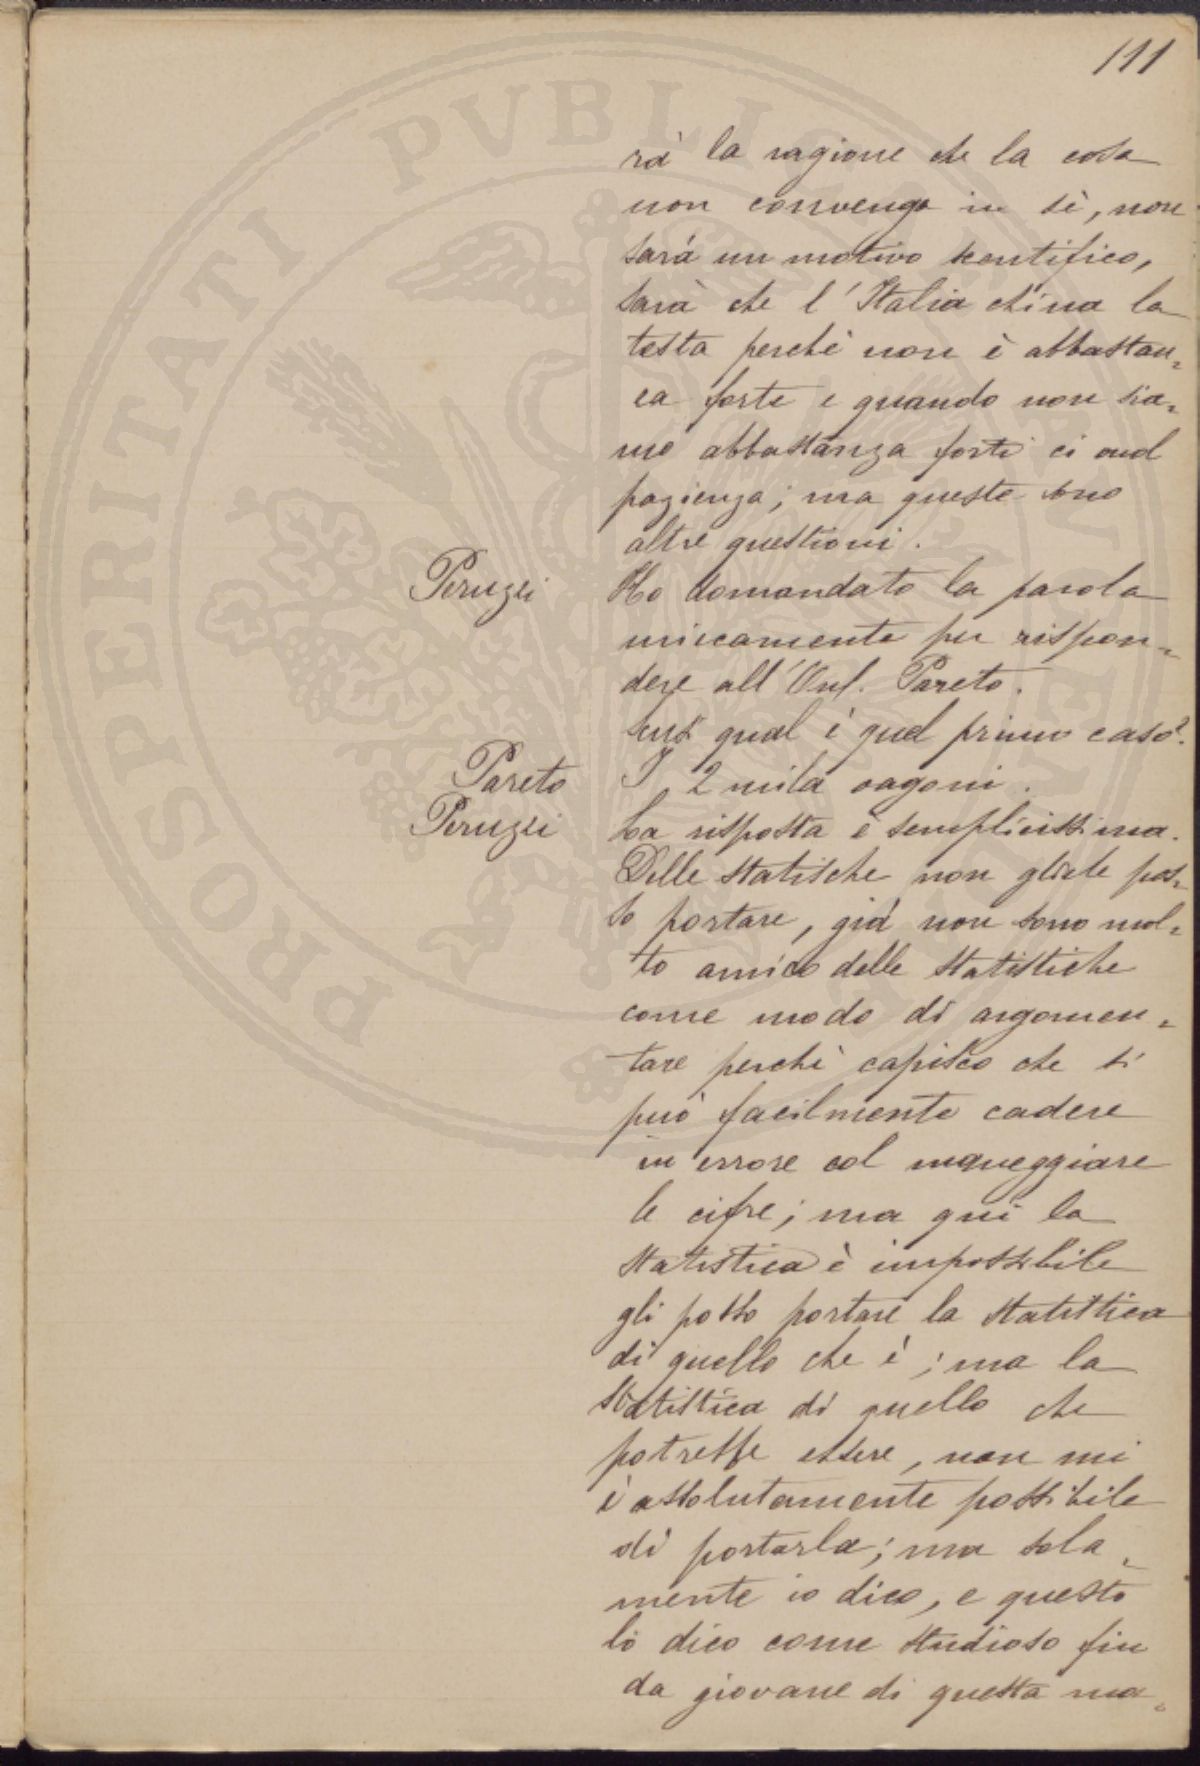 111
rà la ragione che la cosa
non convenga in sè, non
sarà un motivo scentifico,
sarà che l'Italia china la
testa perchè non è abbastan=
za forte e quando non sia=
mo abbastanza forti ci vuol
pazienza; ma queste sono
altre questioni.
Peruzzi Ho domandato la parola
unicamente per rispon=
dere all'On. Pareto.
qual è quel primo caso?
Pareto I 2 mila vagoni.
Peruzzi La risposta è semplicissima.
Delle statische non gliele pos=
so portare, già non sono mol=
to amico delle statistiche
come modo di argomen=
tare perchè capisco che si
può facilmente cadere
in errore col maneggiare
le cifre; ma qui la
statistica è impossibile
gli posso portare la statistica
di quello che è; ma la
statistica di quello che
potrebbe essere, non mi
è assolutamente possibile
di portarla; ma sola=
mente io dico, e questo
lo dico come studioso fin
da giovane di questa ma=
PROSPERITATI PVBLICAE